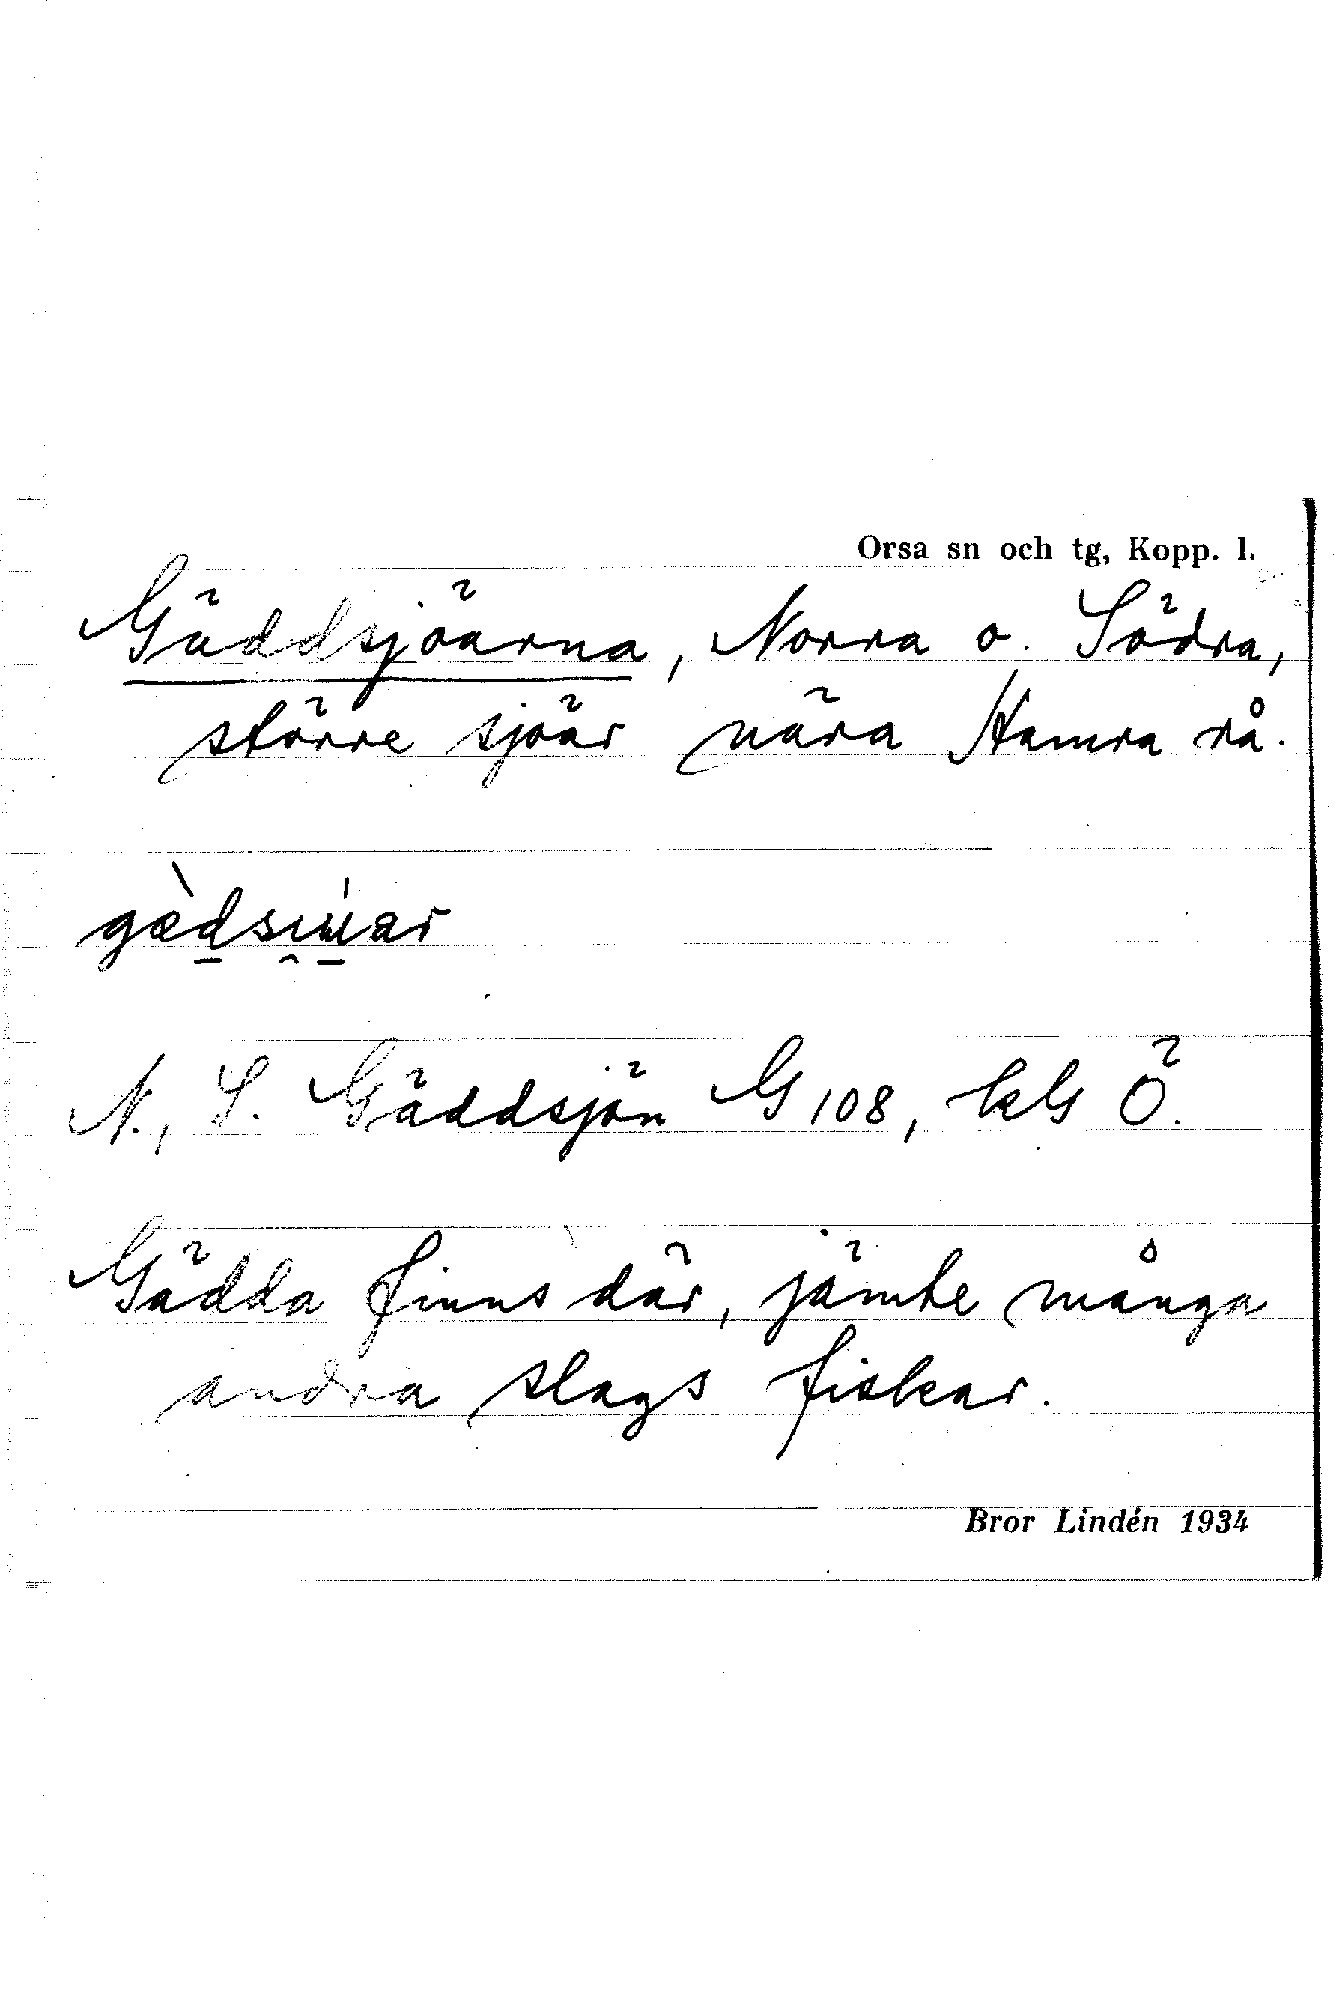 Orsa sn och tg, Kopp. l.
Gäddsjöarna, Norra o. Södra,
större sjöar nära Hamra rå.
N., S. Gäddsjön G 108, kG Ö.
Gädda finns där, jämte många
andra slags fiskar.
Bror Lindén 1934